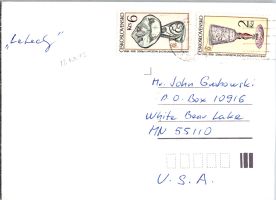 „Letecky"
ČESKOSLOVENSKO
Kčs 6
ČESKOSLOVENSKO
2 Kčs
Mr. John Grabowski
P.O. Box 10916
White Bear Lake
MN 55110
U.S.A.